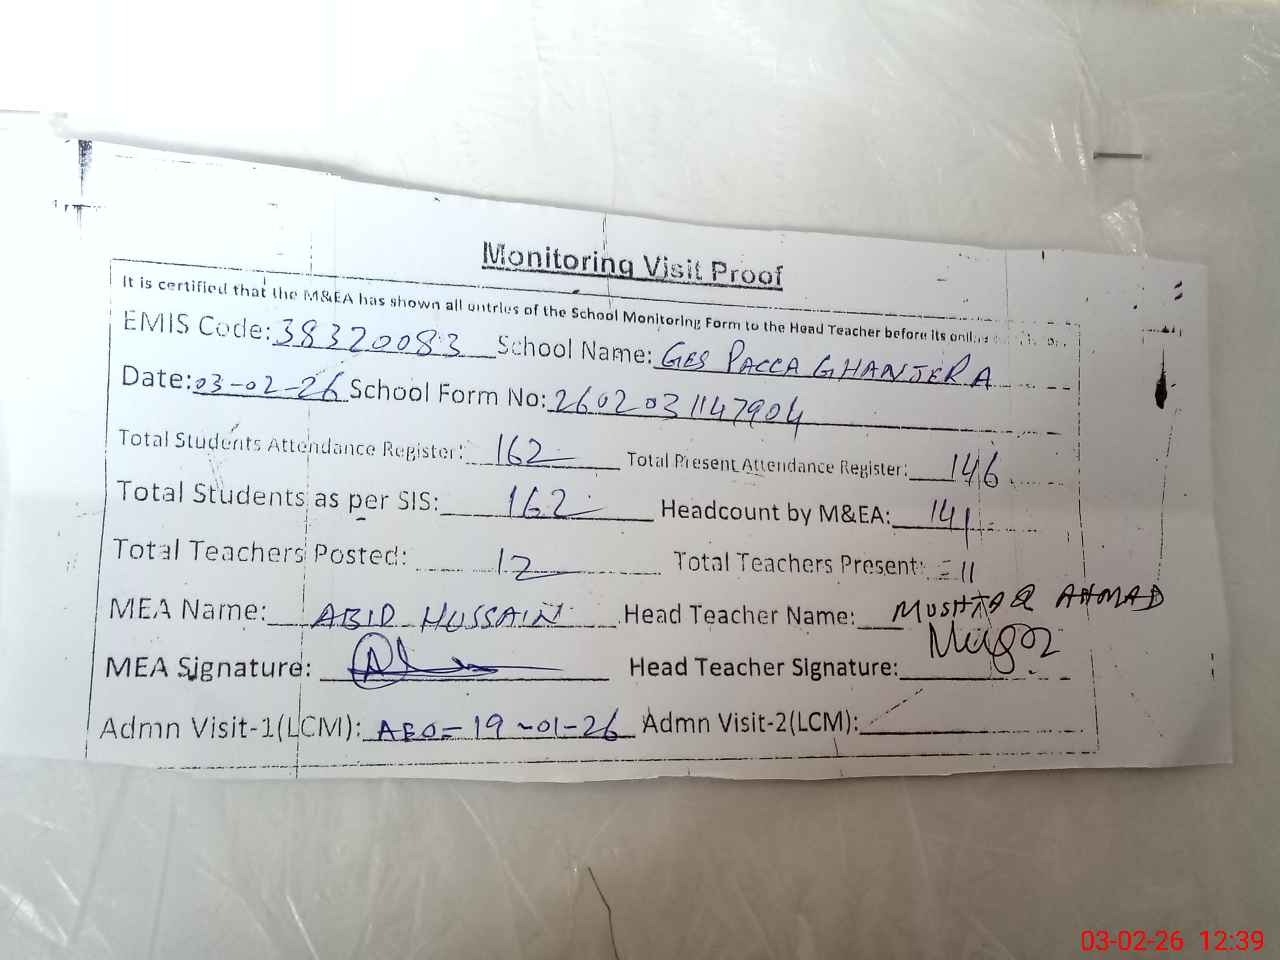 Monitoring Visit Proof
It is certified that the M&EA has shown all entries of the School Monitoring Form to the Head Teacher before its
EMIS Code: 38320083 School Name: GES PACCA GHANJERA
Date: 03-02-26 School Form No: 2602031147904
Total Students Attendance Register: 162 Total Present Attendance Register: 146
Total Students as per SIS: 162 Headcount by M&EA: 141
Total Teachers Posted: 12 Total Teachers Present: 11
MEA Name: ABID HUSSAIN Head Teacher Name: MUSHTAQ AHMAD
MEA Signature: Head Teacher Signature:
Admn Visit-1(LCM): AEO = 19-01-26 Admn Visit-2(LCM):
03-02-26 12:39